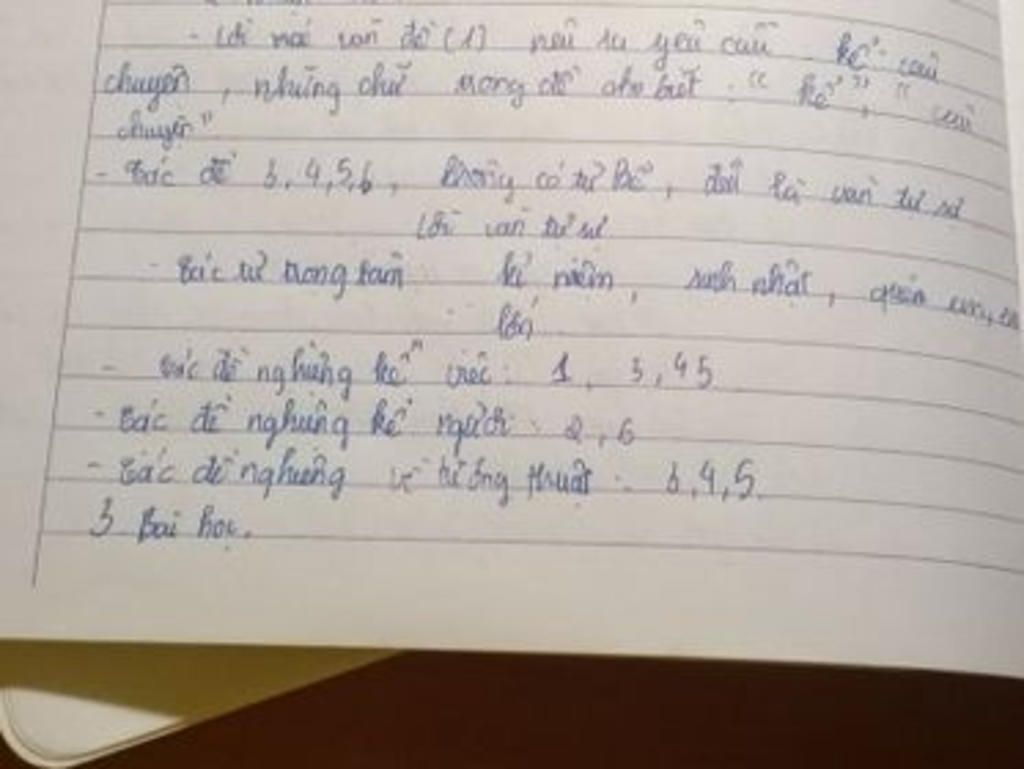 - Lời nói văn đề (1) nêu ra yêu cầu kể câu
chuyện, những chữ trong đề cho biết: "kể", "câu
chuyện"
- Các đề 3, 4, 5, 6, không có từ kể, đều là văn tự sự
Lời văn tự sự
- Các từ trong tâm kỉ niệm, sinh nhật, quê em,
lớn
- Các đề nghiêng kể việc: 1, 3, 4 5
- Các đề nghiêng kể người: 2, 6
- Các đề nghiêng về tường thuật: 3, 4, 5.
3 Bài học.